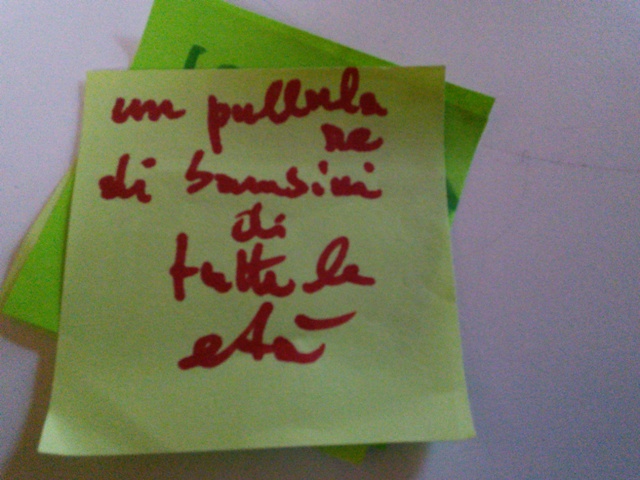 un pullula
re
di bambini
di
tutte le
età